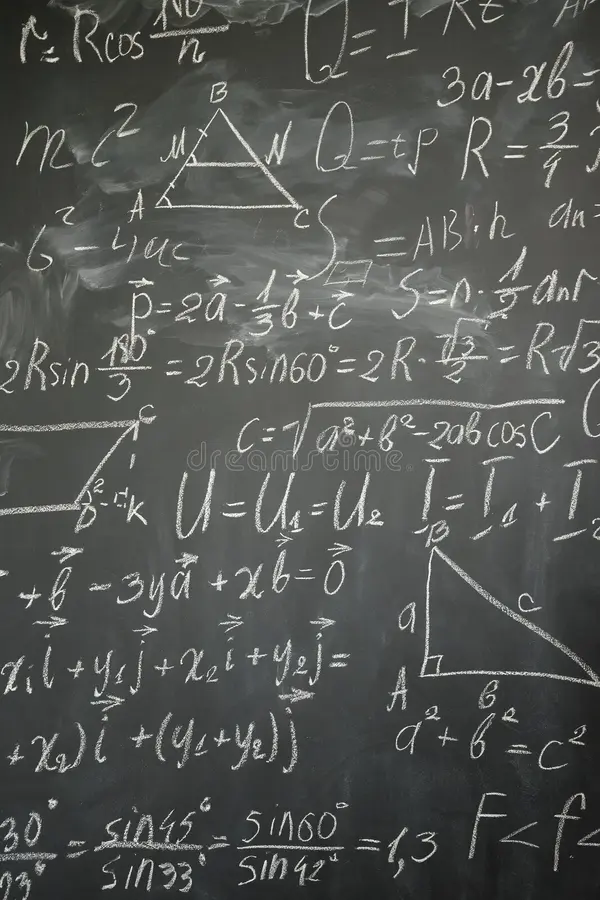 r = R cos 180°/n
Q = I
Rt
3a - xb =
B
mc²
M N
Q = tp
R = 3/4
A C
b² - 4ac
S▱ = AB · h
an =
p⃗ = 2a⃗ - 1/3 b⃗ + c⃗
S = n · 1/2 anr
2R sin 180°/3 = 2R sin60° = 2R · √3/2 = R√3
C
c = √a² + b² - 2ab cosC
D K
U = U₁ = U₂
I = I₁ + I₂
B
+ b⃗ - 3ya⃗ + xb⃗ = 0⃗
a c
x₁i⃗ + y₁j⃗ + x₂i⃗ + y₂j⃗ =
A B
+ x₂)i⃗ + (y₁ + y₂)j⃗
a² + b² = c²
30° = sin45°/sin33° = sin60°/sin42° = 1,3
F < f <
dreamstime